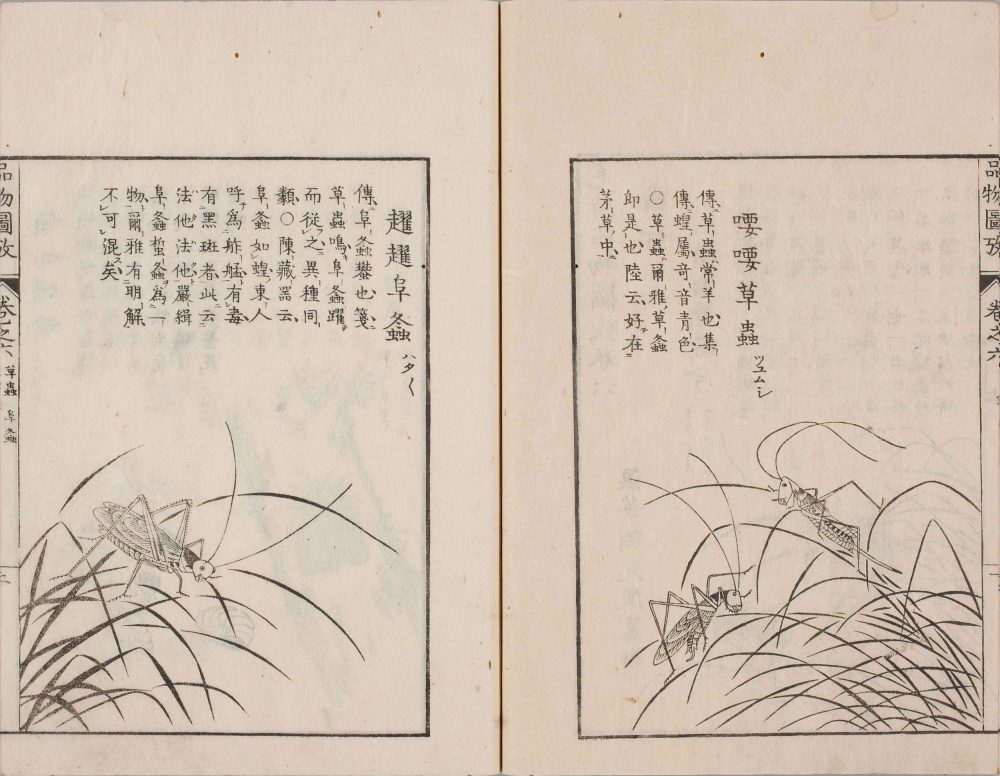 喓喓草蟲 ツユムシ
傳草蟲常羊也集
傳蝗屬奇音青色
○草蟲爾雅草螽
即是也陸云好在
茅草中
品物圖攷
卷之六
趯趯阜螽 ハタ〱
傳阜螽蠜也箋
草蟲鳴阜螽躍
而從之異種同
類○陳藏器云
阜螽如蝗東人
呼爲舴艋有毒
有黑斑者此云
法他法他嚴緝
阜螽蜇螽爲一
物爾雅有明解
不可混矣
品物圖攷
卷之六
草蟲 阜螽
三